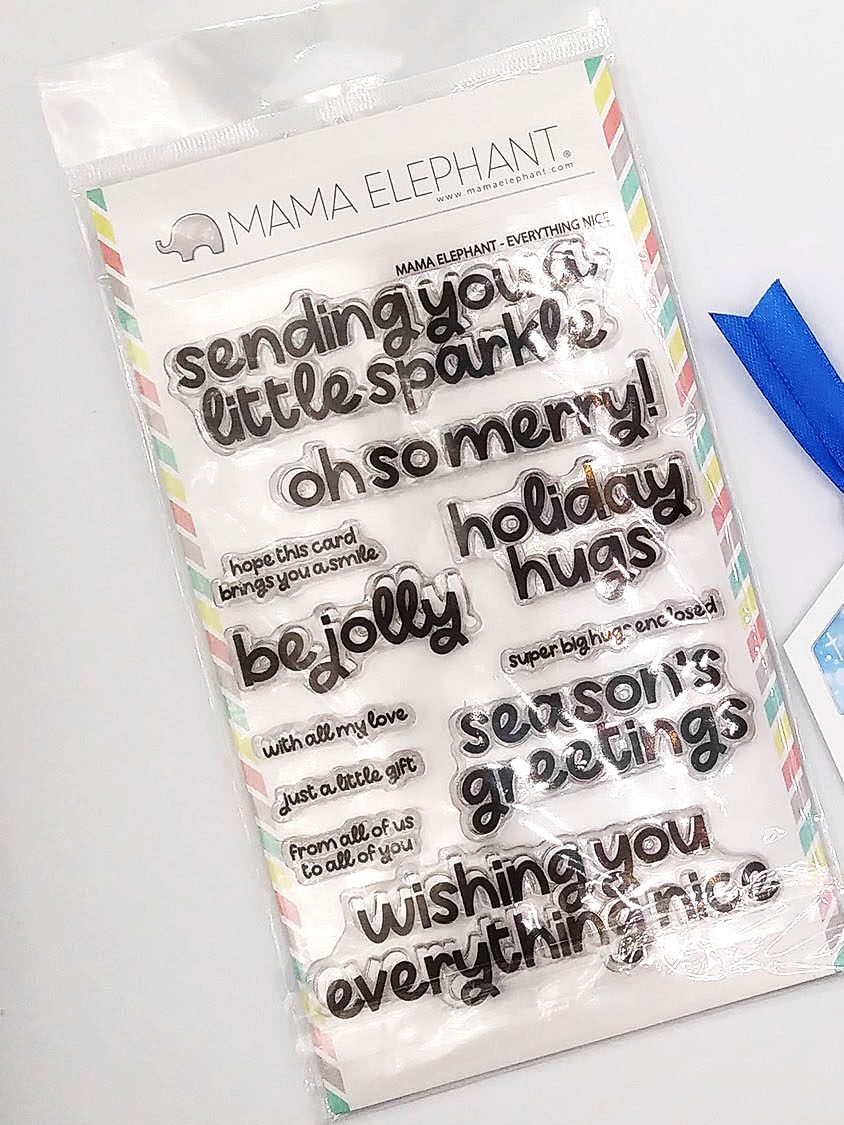 MAMA ELEPHANT®
www.mamaelephant.com
MAMA ELEPHANT - EVERYTHING NICE
sending you a
little sparkle
oh so merry!
holiday
hugs
hope this card
brings you a smile
be jolly
super big hugs enclosed
season's
greetings
with all my love
just a little gift
from all of us
to all of you
wishing you
everything nice